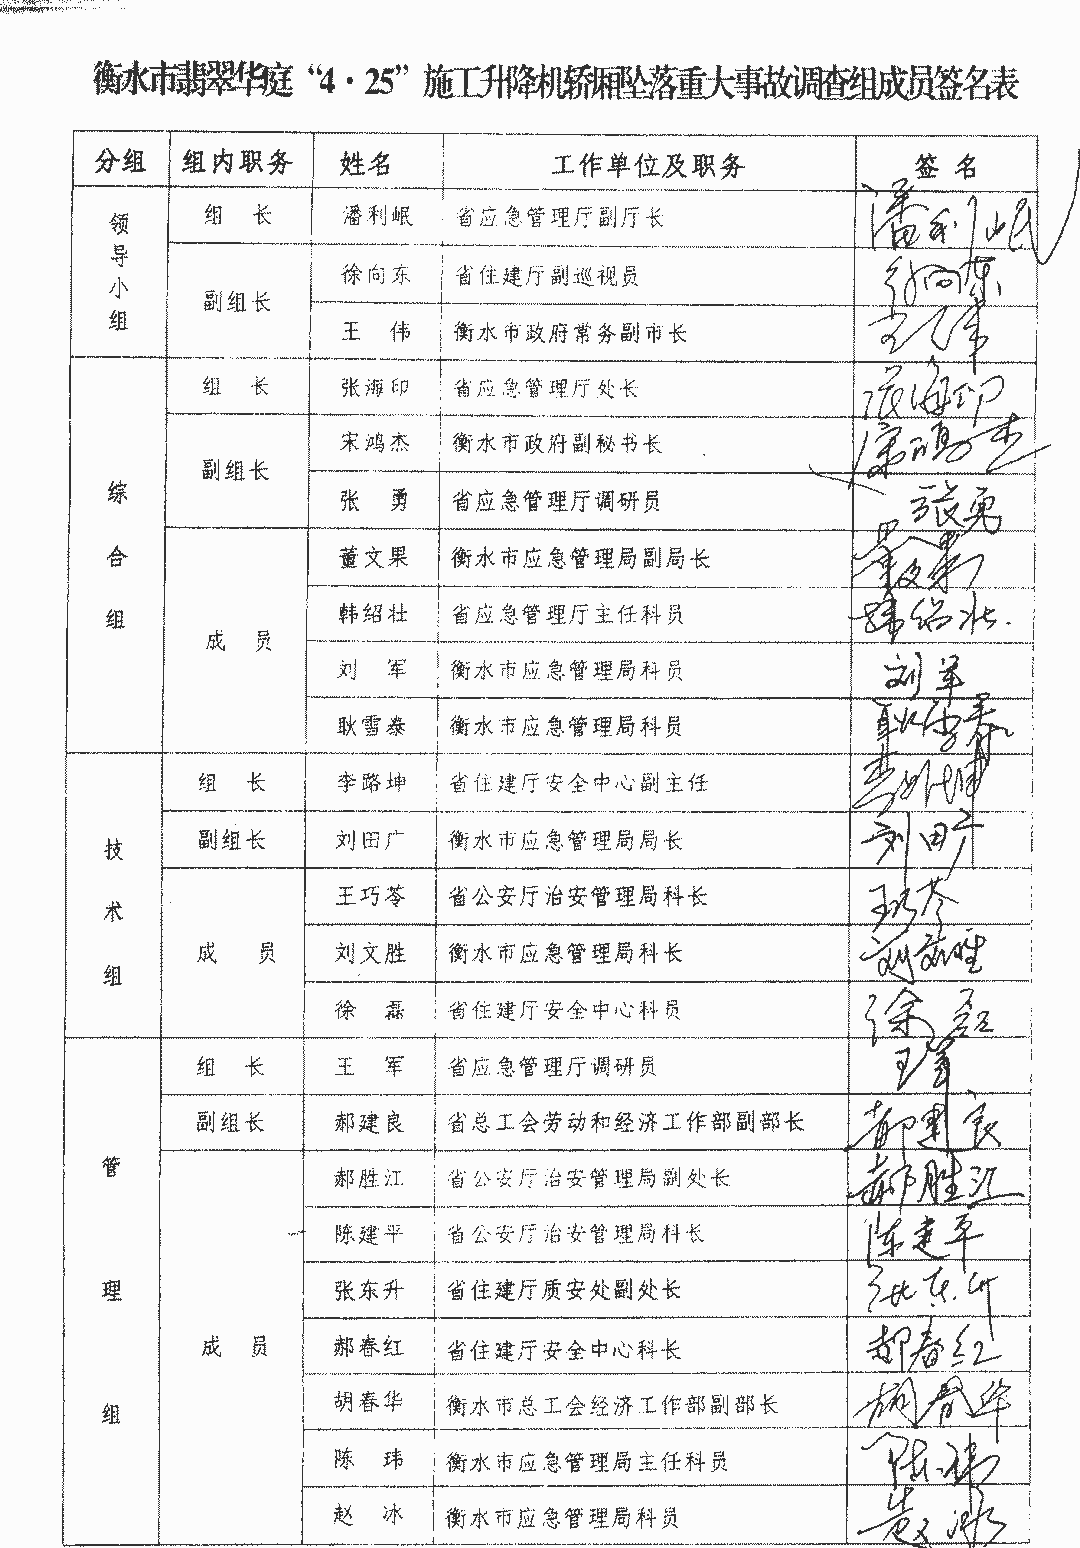 衡水市翡翠华庭“4·25”施工升降机轿厢坠落重大事故调查组成员签名表
分组 组内职务 姓名 工作单位及职务 签名
领导小组
组长 潘利岷 省应急管理厅副厅长 潘利岷
副组长
徐向东 省住建厅副巡视员 徐向东
王伟 衡水市政府常务副市长 王伟
综合组
组长 张海印 省应急管理厅处长 张海印
副组长
宋鸿杰 衡水市政府副秘书长 宋鸿杰
张勇 省应急管理厅调研员 张勇
成员
董文果 衡水市应急管理局副局长 董文果
韩绍壮 省应急管理厅主任科员 韩绍壮
刘军 衡水市应急管理局科员 刘军
耿雪泰 衡水市应急管理局科员 耿雪泰
技术组
组长 李路坤 省住建厅安全中心副主任 李路坤
副组长 刘田广 衡水市应急管理局局长 刘田广
成员
王巧苓 省公安厅治安管理局科长 王巧苓
刘文胜 衡水市应急管理局科长 刘文胜
徐磊 省住建厅安全中心科员 徐磊
管理组
组长 王军 省应急管理厅调研员 王军
副组长 郝建良 省总工会劳动和经济工作部副部长 郝建良
成员
郝胜江 省公安厅治安管理局副处长 郝胜江
陈建平 省公安厅治安管理局科长 陈建平
张东升 省住建厅质安处副处长 张东升
郝春红 省住建厅安全中心科长 郝春红
胡春华 衡水市总工会经济工作部副部长 胡春华
陈玮 衡水市应急管理局主任科员 陈玮
赵冰 衡水市应急管理局科员 赵冰